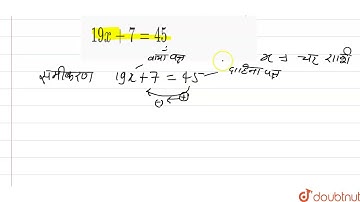 19x + 7 = 45
वाम पक्ष
x = चर राशी
समीकरण 19x + 7 = 45
दाहिना पक्ष
(-) (+)
doubtnut